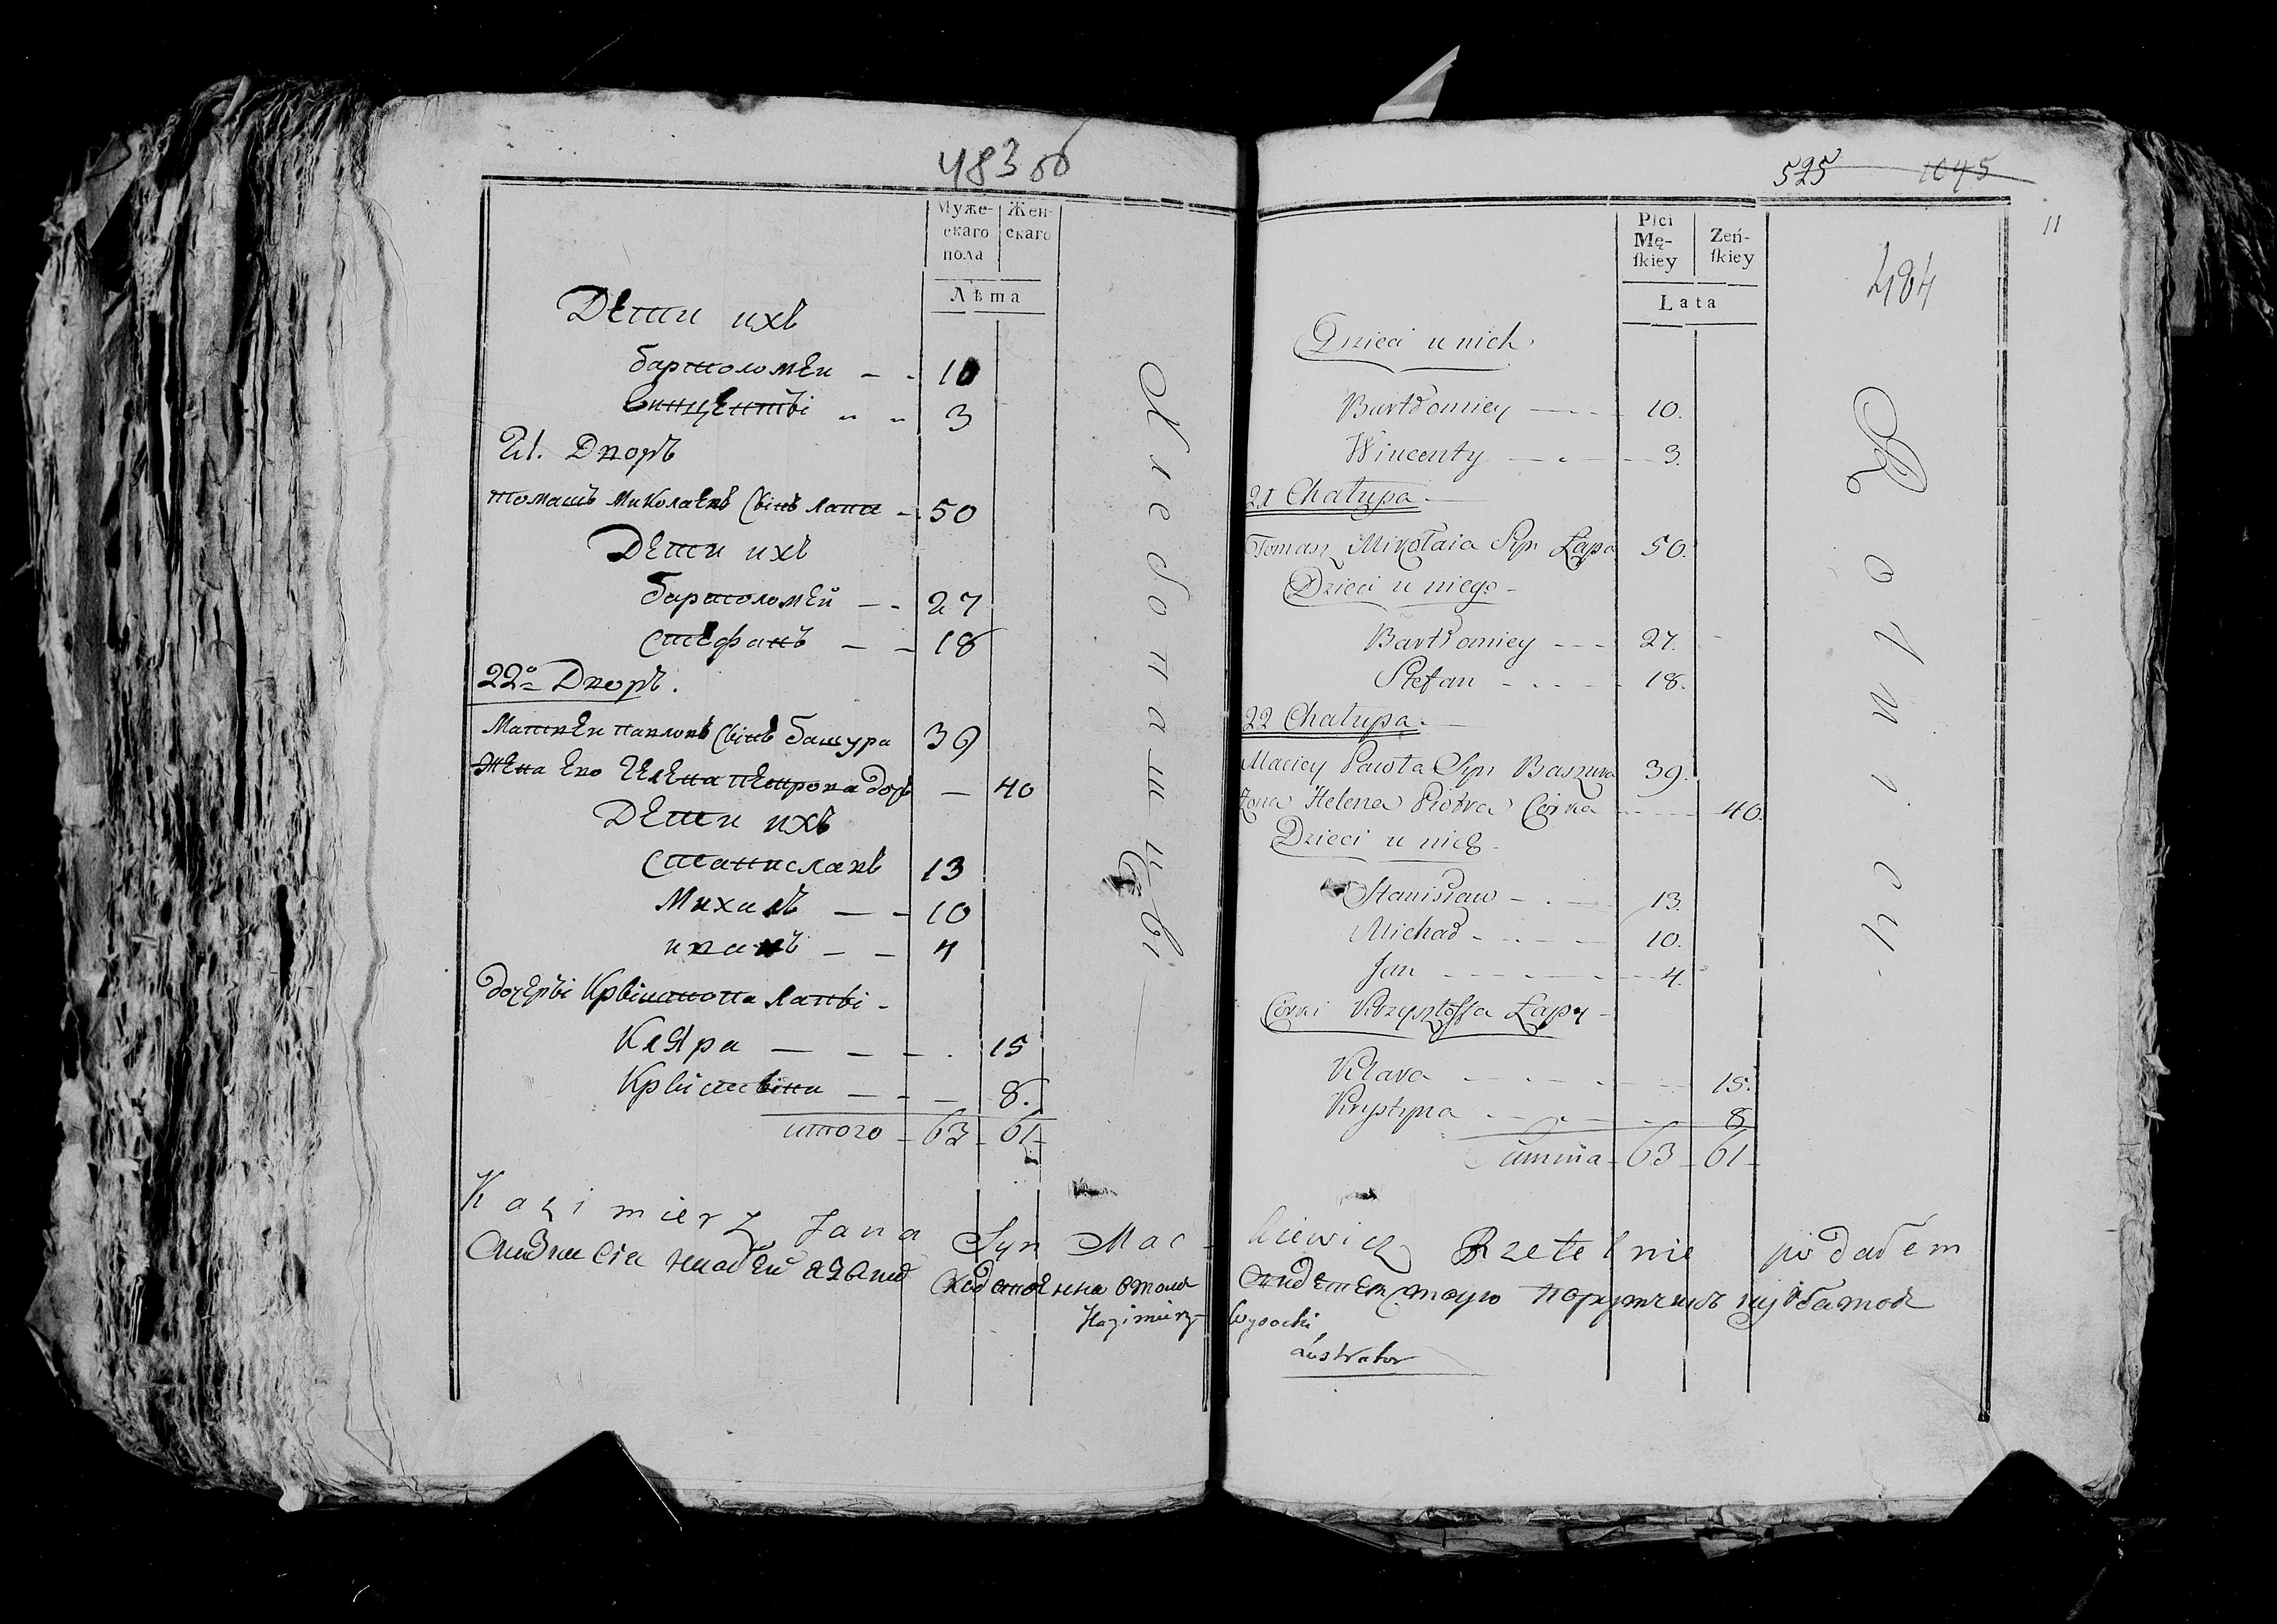 483 об
Муже- Жен-
скаго скаго
пола
Лѣта
Дѣти ихъ
бартоломѣи 10
винцентьі 3
21. Дворъ
томашъ Миколаевъ Сынъ Лапа 50
Дети ихъ
бартоломѣй 27
стефанъ 18
22е Дворъ.
Матвеи павловъ Сынъ башура 39
жена Его Гелена петрова дочь 40
Дети ихъ
станиславъ 13
Михалъ 10
иванъ 4
дочерьі Крыштопа лапьі
Кляра 15
Крыстына 8.
итого 63 61
Хлебопашцьі
Kazimierz Jana Syn Mac-
Kazimierz
525 1045
11
484
Płci Zeń-
Mę- skiey
skiey
Lata
Dzieci u nich
Bartłomiey 10.
Wincenty 3.
21 Chałupa.
Tomasz Mikołaia Syn Łapa 50.
Dzieci u niego
Bartłomiey 27.
Stefan 18.
22 Chałupa.
Maciey Pawła Syn Baszura 39.
Zona Helena Piotra Córka 40.
Dzieci u nich
Stanisław 13.
Michał 10.
Jan 4.
Córki Krzysztoffa Łapy
Klara 15.
Krystyna 8
Summa 63 61
Rolnicy.
kiewicz Rzetelnie podałem
Wysocki
Lustrator